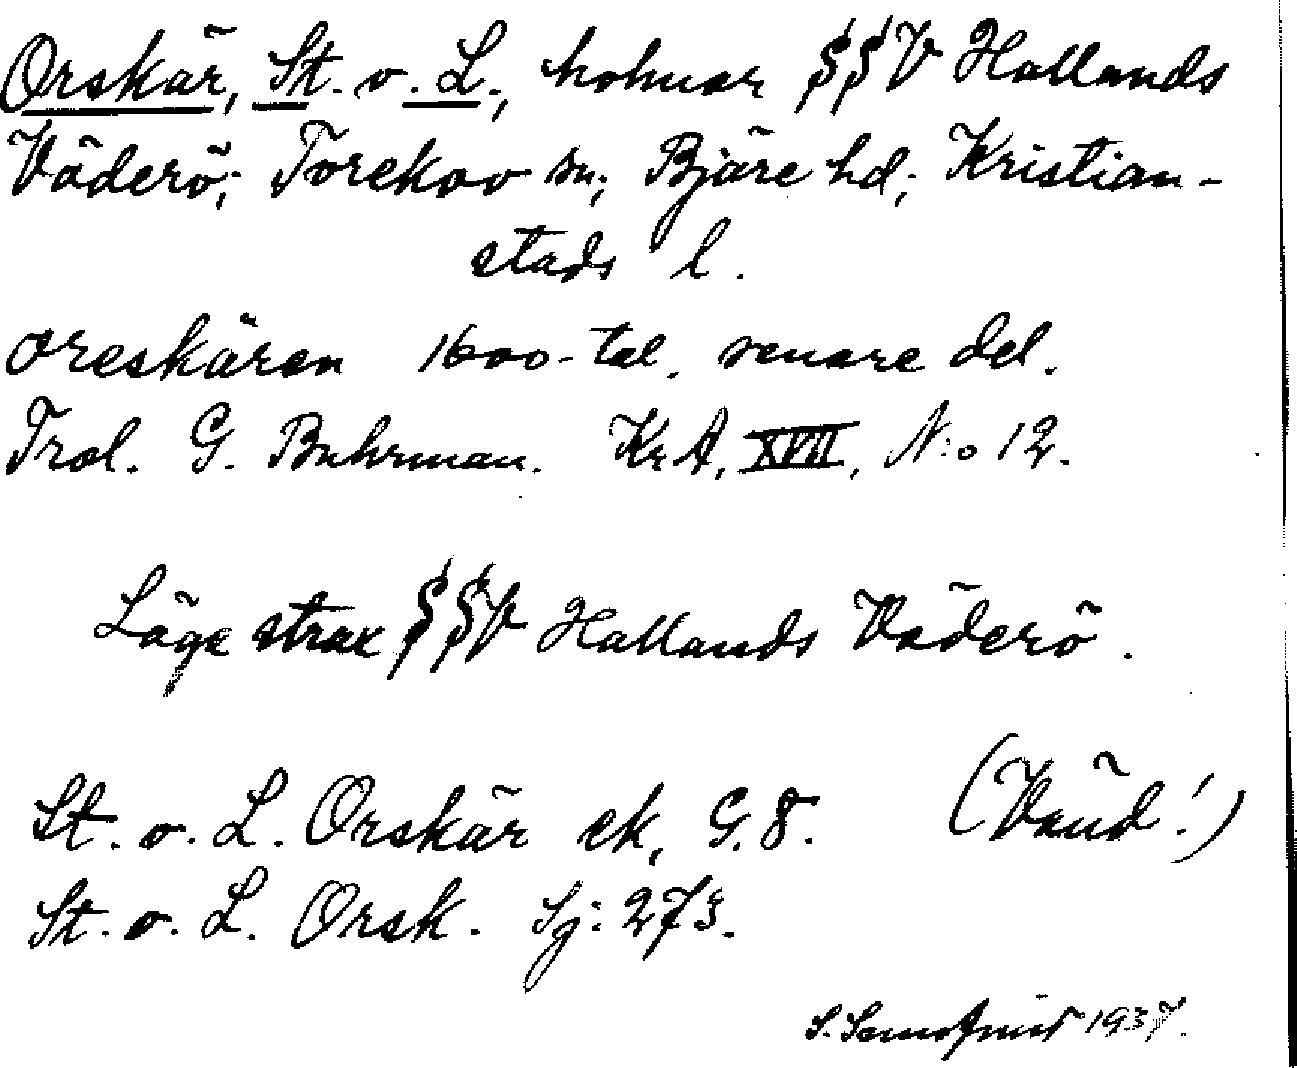 Orskär, St. o. L., holmar SSV Hallands
Väderö; Torekov sn; Bjäre hd; Kristian-
stads l.
oreskären 1600-tal. senare del.
Trol. G. Buhrman. KrA, XVII, N:o 12.
Läge strax SSV Hallands Väderö.
St. o. L. Orskär ek, G.8. (Vänd!)
St. o. L. Orsk. Sj: 273.
S. 1937.